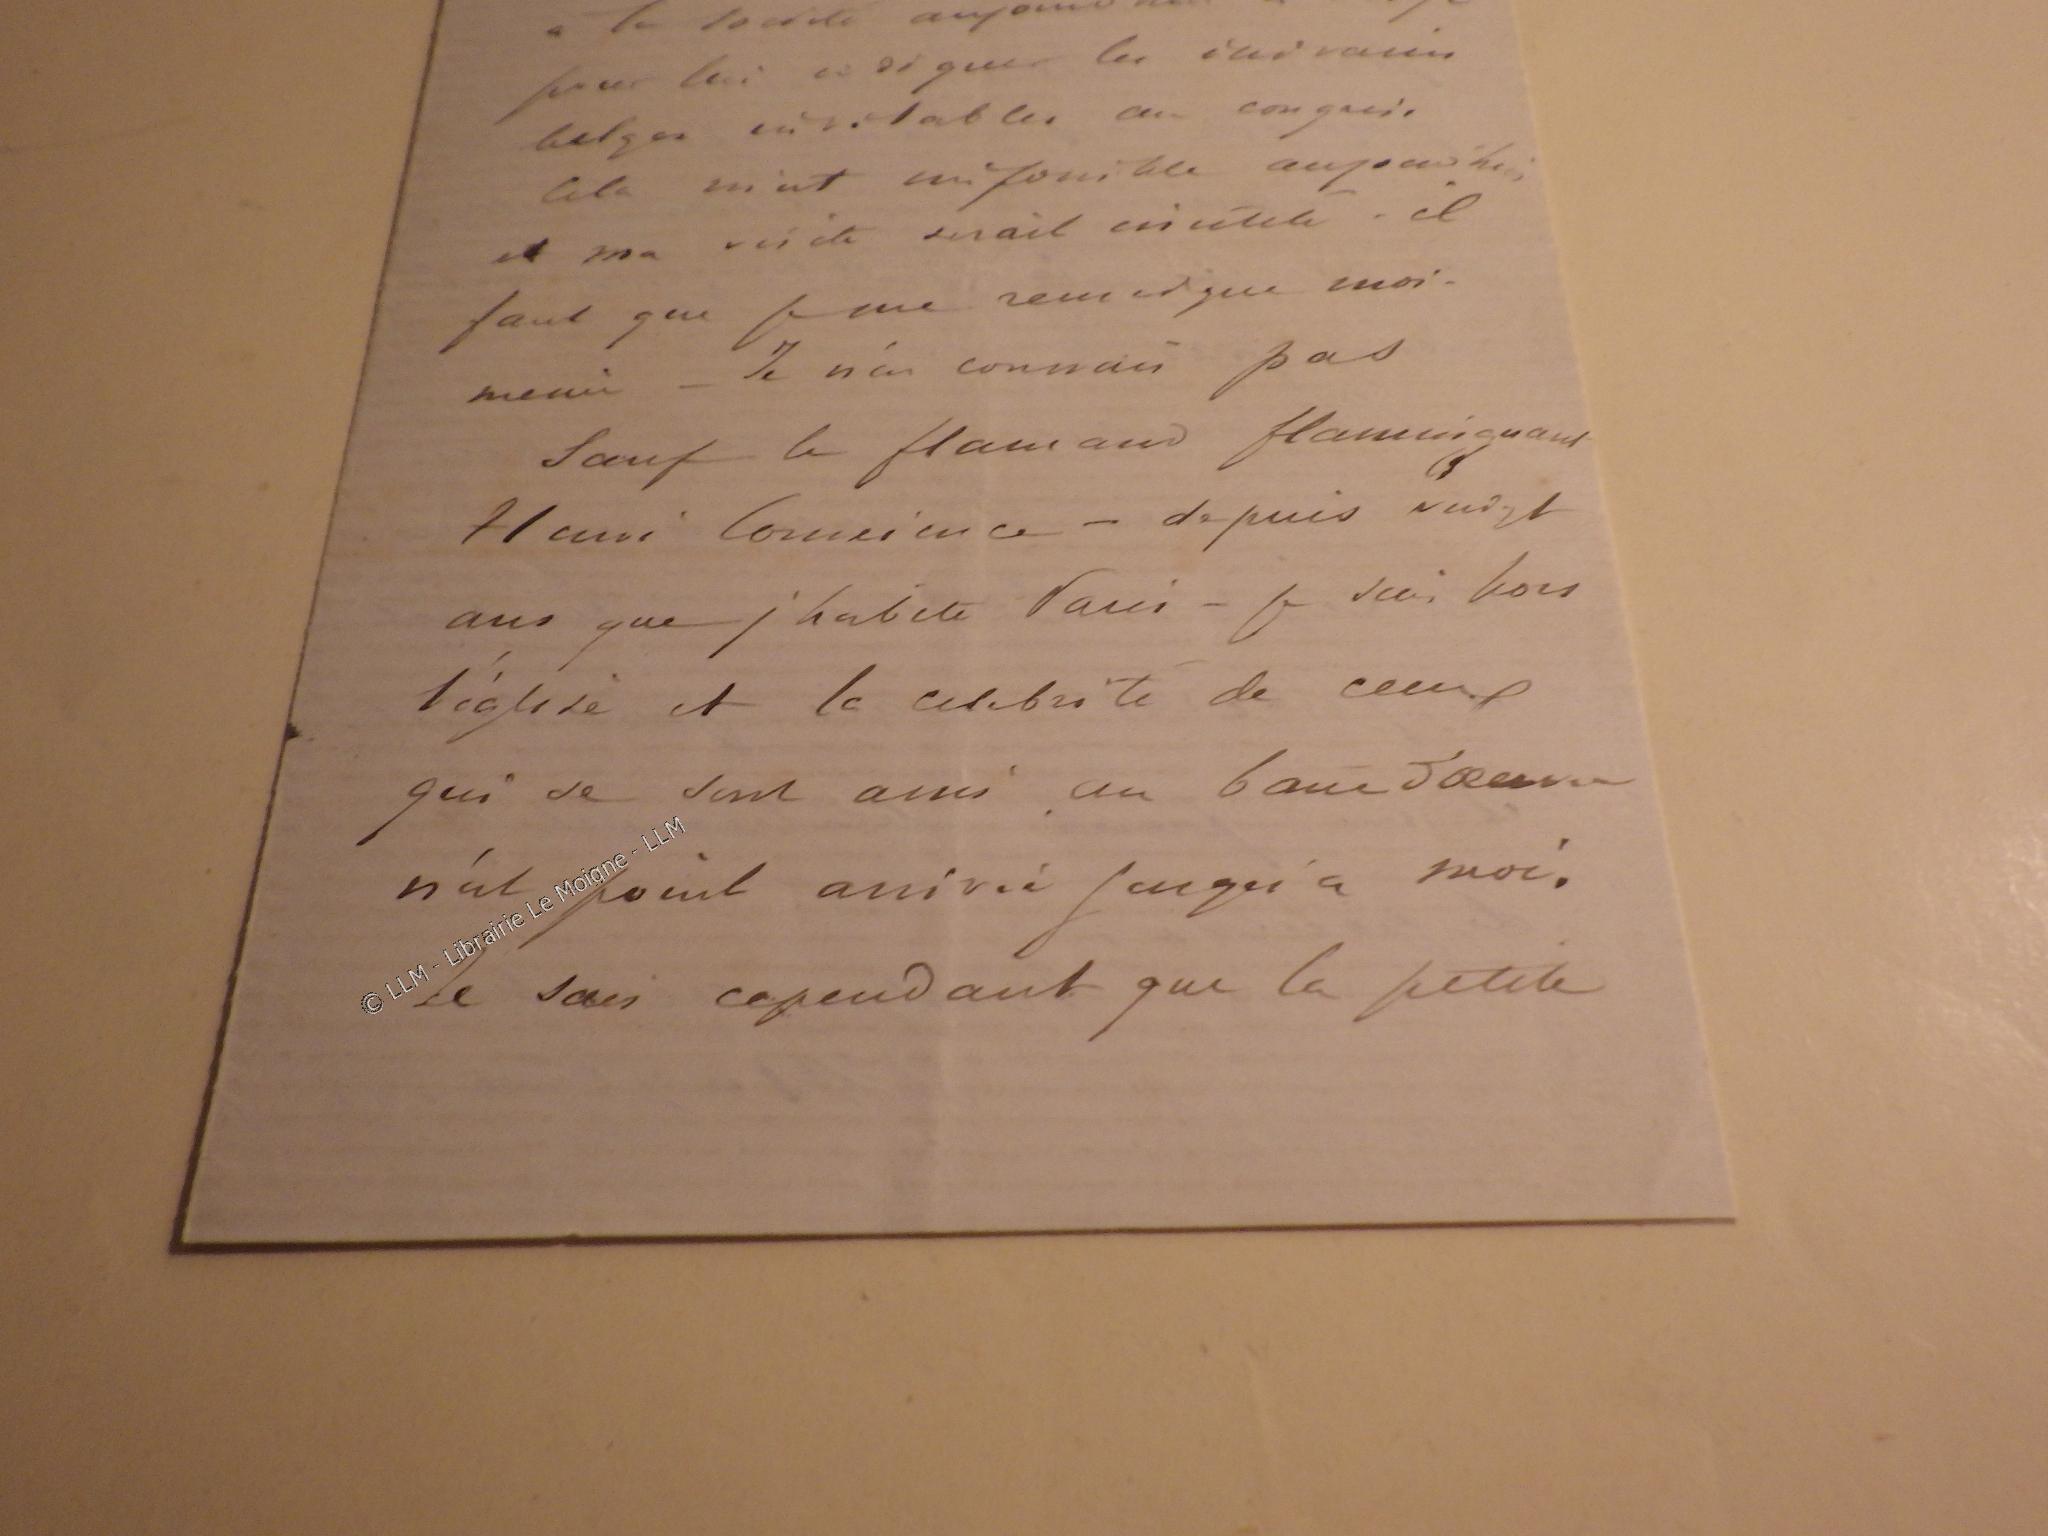 à la société aujourd'hui
pour lui indiquer les écrivains
belges invitables au congrès.
Cela m'est impossible aujourd'hui
et ma visite serait inutile - il
faut que je me renseigne moi-
même - Je n'en connais pas
Sauf le flamand flamingant
Henri Conscience - depuis vingt
ans que j'habite Paris - je suis hors
l'église et la célébrité de ceux
qui se sont assis au banc d'œuvre
n'est point arrivée jusqu'à moi.
Je sais cependant que la petite
© LLM - Librairie Le Moigne - LLM